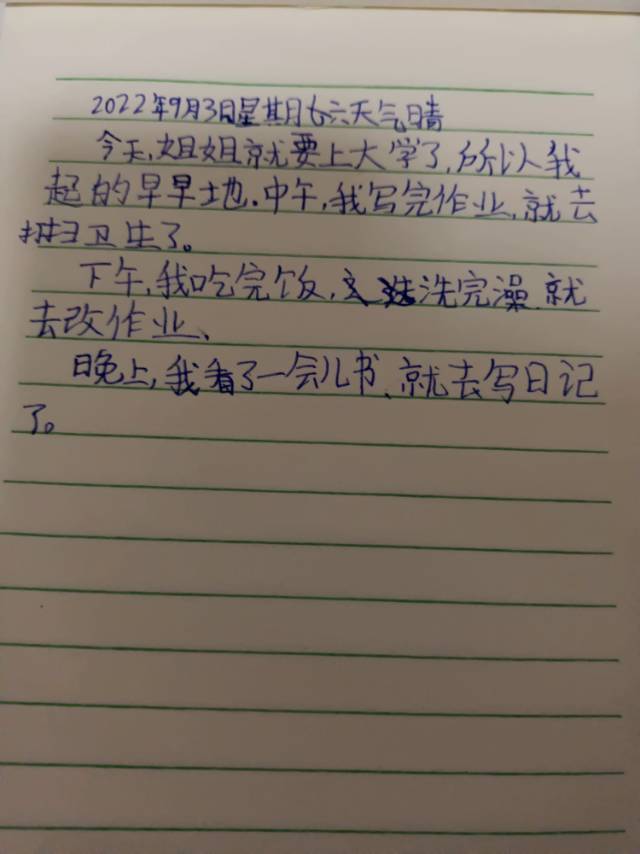 2022年9月3日星期六天气晴
今天,姐姐就要上大学了,所以我
起的早早地.中午,我写完作业,就去
扫卫生了。
下午,我吃完饭,洗完澡,就
去改作业、
晚上,我看了一会儿书、就去写日记
了。